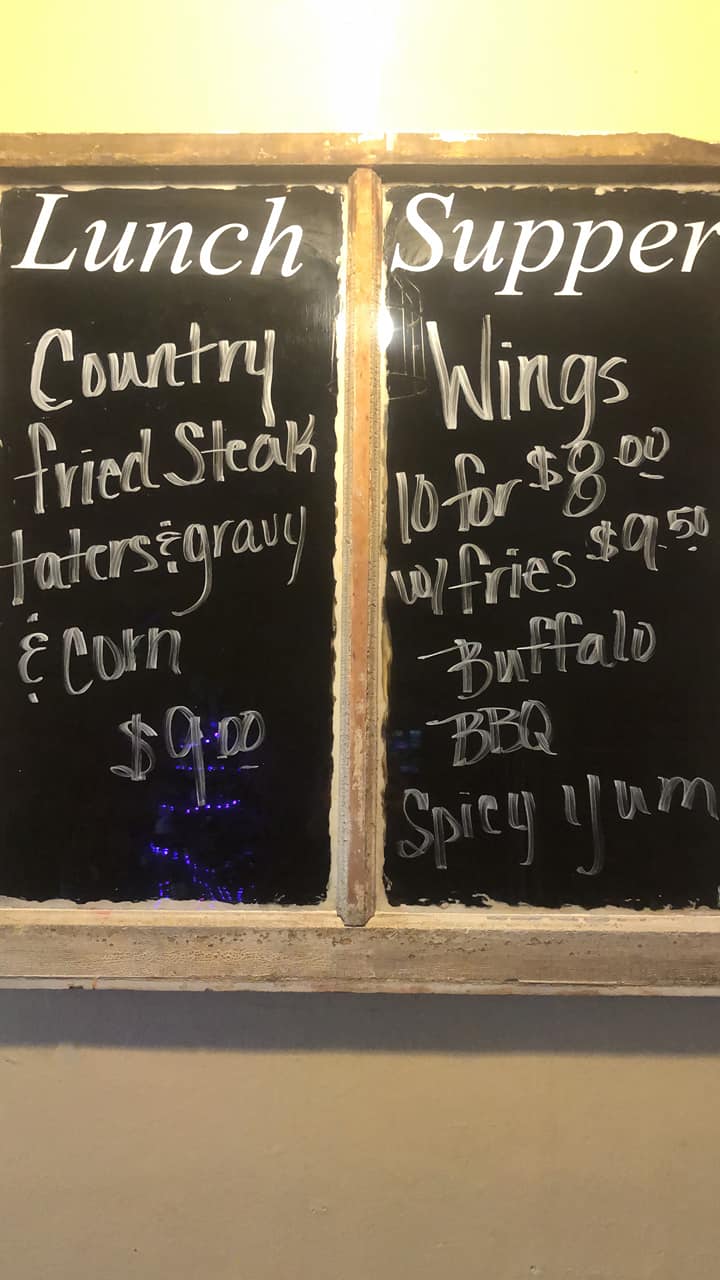 Lunch
Country
fried Steak
taters & gravy
& Corn
$9.00
Supper
Wings
10 for $8.00
w/ fries $9.50
Buffalo
BBQ
Spicy Yum